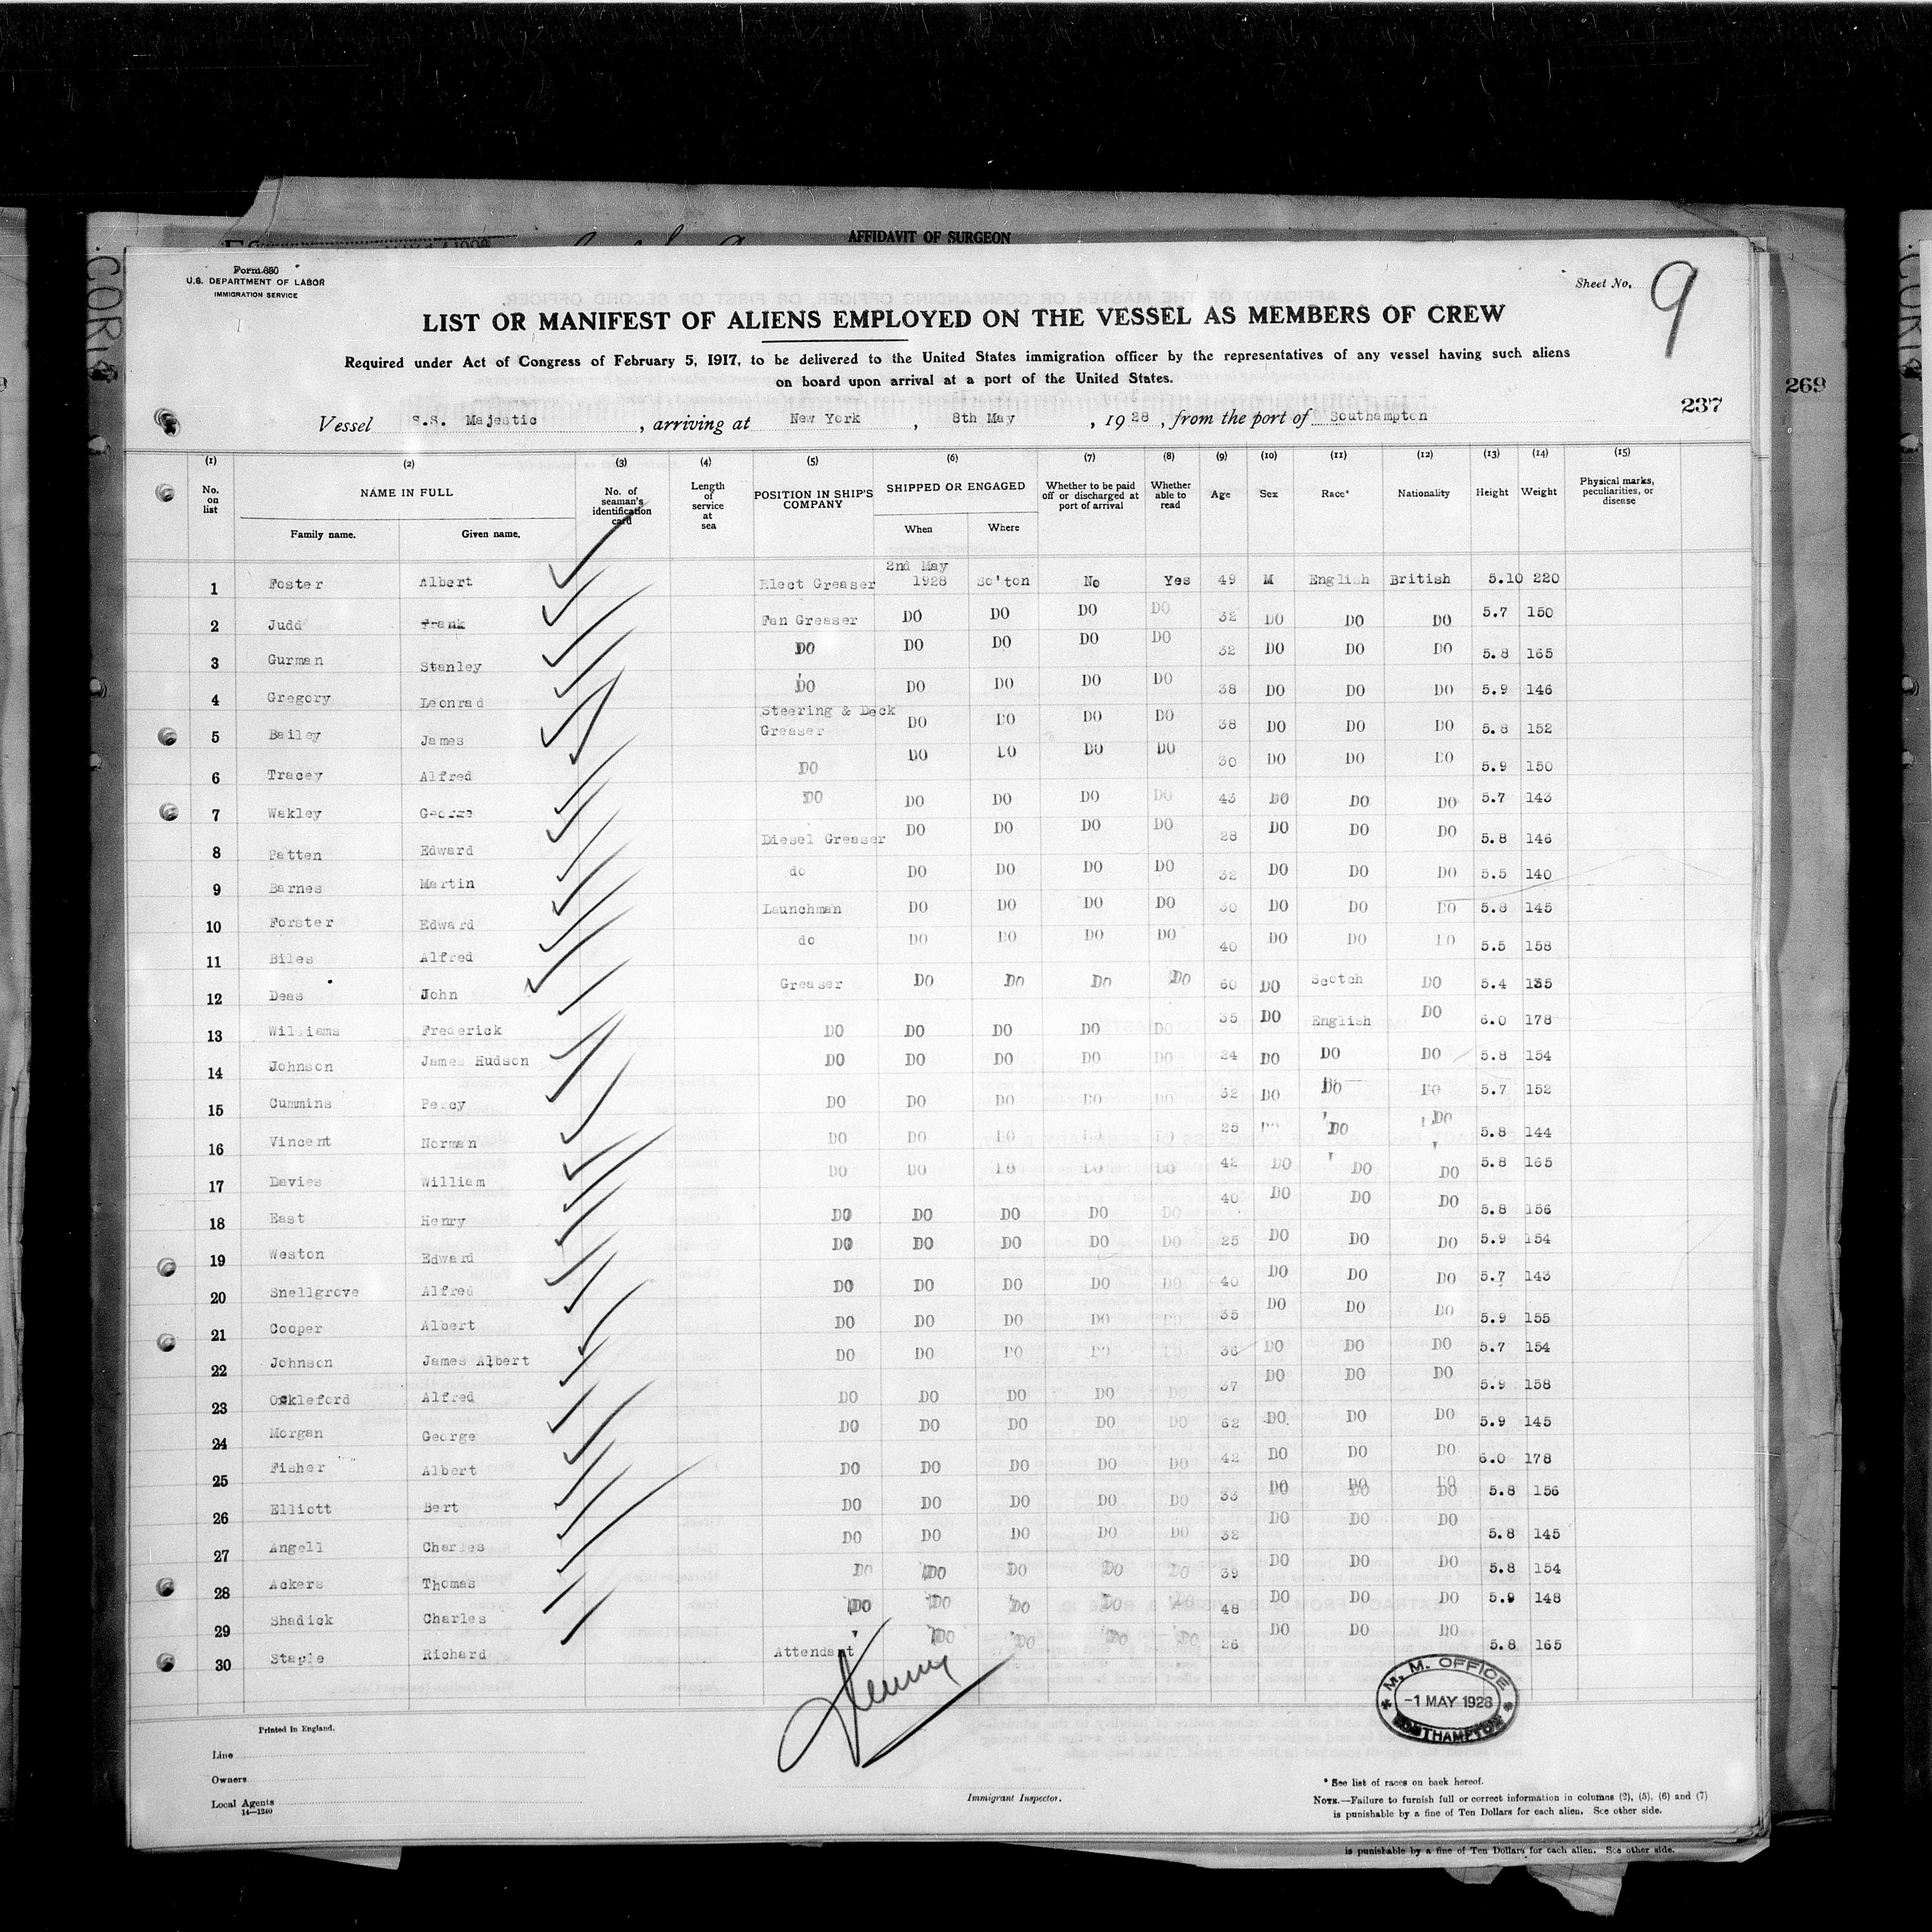 AFFIDAVIT OF SURGEON
Form 680
U.S. DEPARTMENT OF LABOR
IMMIGRATION SERVICE
Sheet No. 9
LIST OR MANIFEST OF ALIENS EMPLOYED ON THE VESSEL AS MEMBERS OF CREW
Required under Act of Congress of February 5, 1917, to be delivered to the United States immigration officer by the representatives of any vessel having such aliens
on board upon arrival at a port of the United States.
269
237
Vessel S.S. Majestic, arriving at New York, 8th May, 1928, from the port of Southampton
(1) (2) (3) (4) (5) (6) (7) (8) (9) (10) (11) (12) (13) (14) (15)
No. on list NAME IN FULL No. of seaman's identification card Length of service at sea POSITION IN SHIP'S COMPANY SHIPPED OR ENGAGED Whether to be paid off or discharged at port of arrival Whether able to read Age Sex Race* Nationality Height Weight Physical marks, peculiarities, or disease
Family name. Given name. When Where
1 Foster Albert Elect Greaser 2nd May 1928 So'ton No Yes 49 M English British 5.10 220
2 Judd Frank Fan Greaser DO DO DO DO 32 DO DO DO 5.7 150
3 Gurman Stanley DO DO DO DO DO 32 DO DO DO 5.8 165
4 Gregory Leonrad DO DO DO DO DO 38 DO DO DO 5.9 146
5 Bailey James Steering & Deck Greaser DO DO DO DO 38 DO DO DO 5.8 152
6 Tracey Alfred DO DO DO DO DO 30 DO DO DO 5.9 150
7 Wakley George DO DO DO DO DO 43 DO DO DO 5.7 143
8 Patten Edward Diesel Greaser DO DO DO DO 28 DO DO DO 5.8 146
9 Barnes Martin do DO DO DO DO 32 DO DO DO 5.5 140
10 Forster Edward Launchman DO DO DO DO 30 DO DO DO 5.8 145
11 Biles Alfred do DO DO DO DO 40 DO DO DO 5.5 158
12 Deas John Greaser DO DO DO DO 60 DO Scotch DO 5.4 135
13 Williams Frederick DO DO DO DO DO 35 DO English DO 6.0 178
14 Johnson James Hudson DO DO DO DO DO 24 DO DO DO 5.8 154
15 Cummins Percy DO DO DO DO DO 32 DO DO DO 5.7 152
16 Vincent Norman DO DO DO DO DO 25 DO DO DO 5.8 144
17 Davies William DO DO DO DO DO 42 DO DO DO 5.8 165
18 East Henry DO DO DO DO DO 40 DO DO DO 5.8 156
19 Weston Edward DO DO DO DO DO 25 DO DO DO 5.9 154
20 Snellgrove Alfred DO DO DO DO DO 40 DO DO DO 5.7 143
21 Cooper Albert DO DO DO DO DO 35 DO DO DO 5.9 155
22 Johnson James Albert DO DO DO DO DO 36 DO DO DO 5.7 154
23 Ockleford Alfred DO DO DO DO DO 37 DO DO DO 5.9 158
24 Morgan George DO DO DO DO DO 62 DO DO DO 5.9 145
25 Fisher Albert DO DO DO DO DO 42 DO DO DO 6.0 178
26 Elliott Bert DO DO DO DO DO 33 DO DO DO 5.8 156
27 Angell Charles DO DO DO DO DO 32 DO DO DO 5.8 145
28 Ackers Thomas DO DO DO DO DO 39 DO DO DO 5.8 154
29 Shadick Charles DO DO DO DO DO 48 DO DO DO 5.9 148
30 Staple Richard Attendant DO DO DO DO 26 DO DO DO 5.8 165
M. M. OFFICE
-1 MAY 1928
SOUTHAMPTON
Printed in England.
Line
Owners
Local Agents
14—1240
Immigrant Inspector.
* See list of races on back hereof.
NOTE.—Failure to furnish full or correct information in columns (2), (5), (6) and (7)
is punishable by a fine of Ten Dollars for each alien. See other side.
is punishable by a fine of Ten Dollars for each alien. See other side.